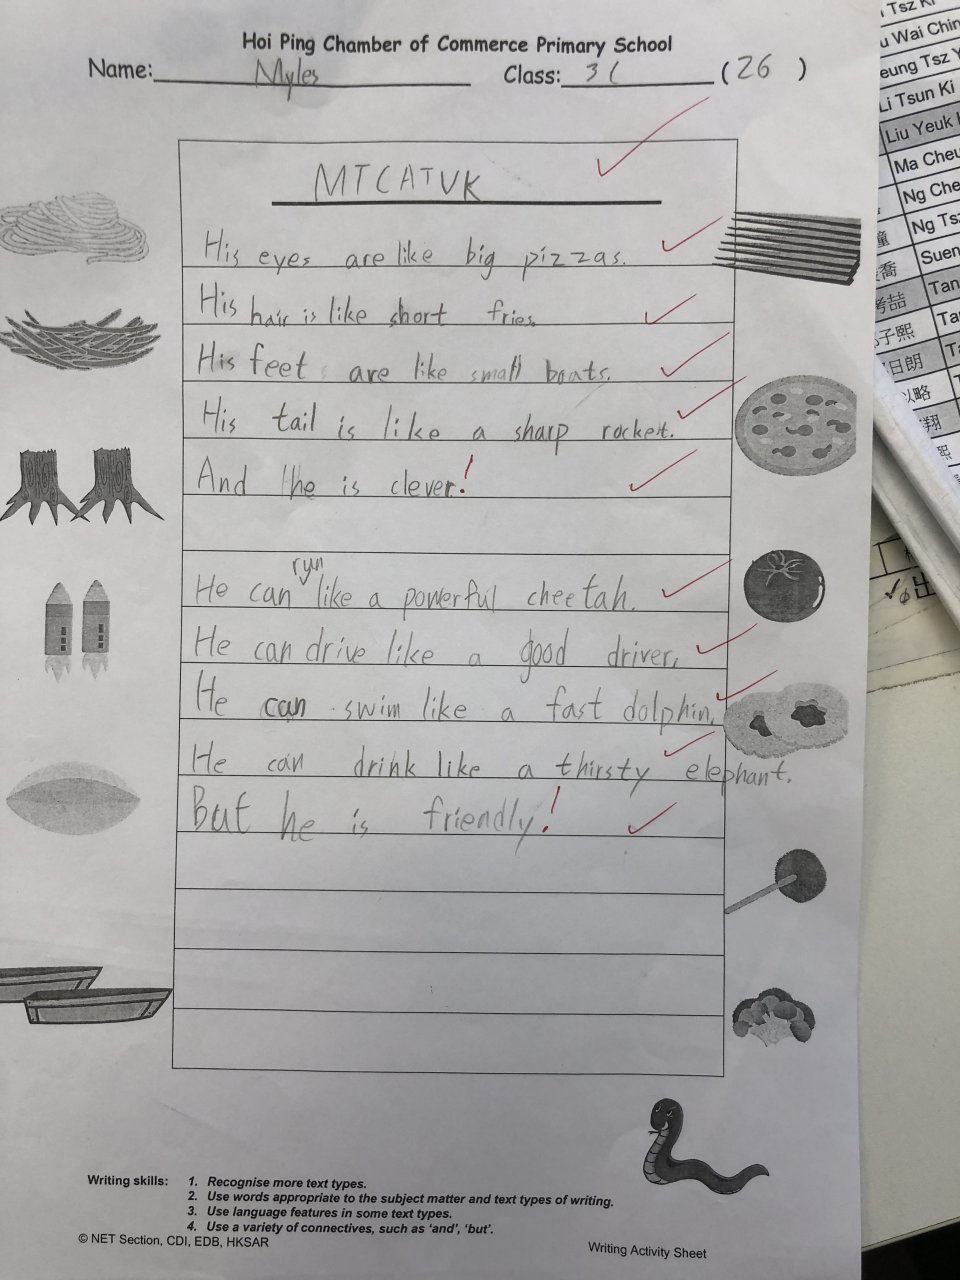 Hoi Ping Chamber of Commerce Primary School
Name: Myles Class: 3C (26)
MTCATVK
His eyes are like big pizzas.
His hair is like short fries.
His feet are like small boats.
His tail is like a sharp rocket.
And he is clever!
He can run like a powerful cheetah.
He can drive like a good driver.
He can swim like a fast dolphin.
He can drink like a thirsty elephant.
But he is friendly!
Writing skills: 1. Recognise more text types.
2. Use words appropriate to the subject matter and text types of writing.
3. Use language features in some text types.
4. Use a variety of connectives, such as 'and', 'but'.
© NET Section, CDI, EDB, HKSAR
Writing Activity Sheet
Tsz
Wai Chin
eung Tsz
Li Tsun Ki
Liu Yeuk
Ma Cheu
Ng Che
Ng Tsz
喬 Suen
考喆 Tan
子熙
日朗
以略
翔
熙
出